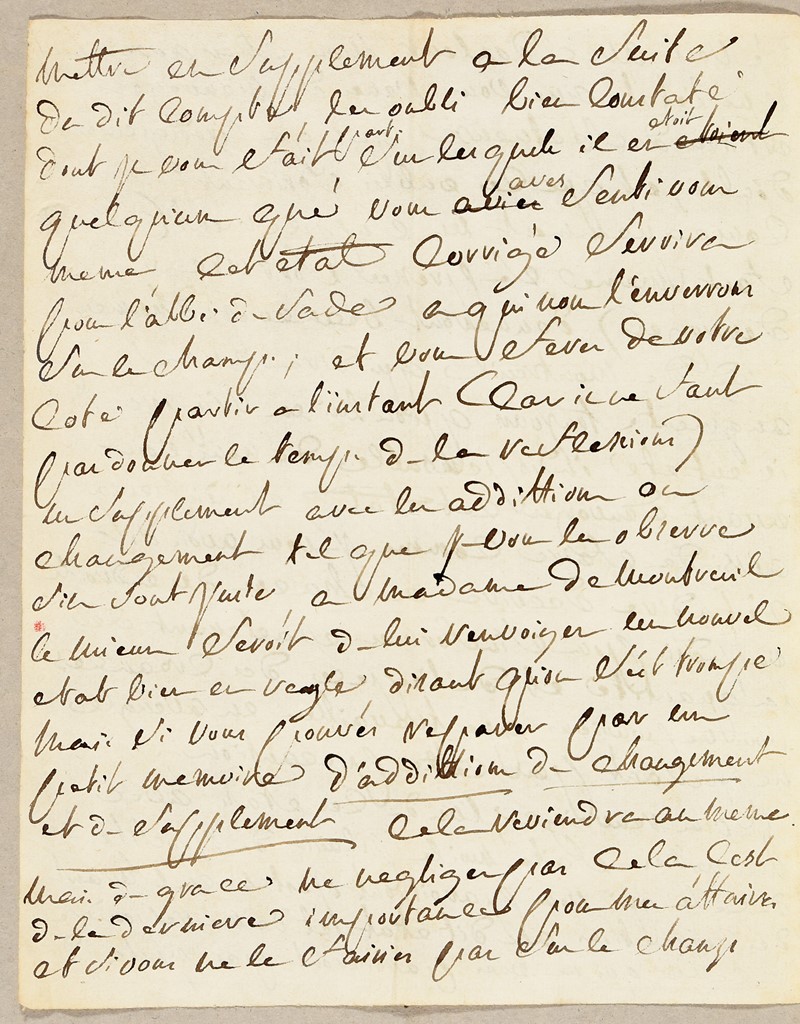 mettre en supplement a la suite
du dit compte, les oubli bien constaté
dont je vous fait part sur lesquels il en etoit etoient
quelqu'un que vous avies aves senti vous
meme, cet etat corrigé servira
pour l'abbé de Sade a qui nous l'enverrons
sur le champ; et vous feres de votre
coté partir a l'instant (car il ne faut
pas donner le temps de la reflexions)
un supplement avec les addittions ou
changement tel que je vous les observe
s'ils sont juste, a madame de Montreuil
le mieux seroit de lui renvoiyer un nouvel
etat bien en reagle disant qu'on s'est trompe
mais si vous pouvés resparer par un
petit memoire d'addittions de changement
et de supplement cela reviendra au meme.
mais de grace ne negliges pas cela c'est
de la derniere importance pour mes affaires
et si vous ne le faisies pas sur le champ